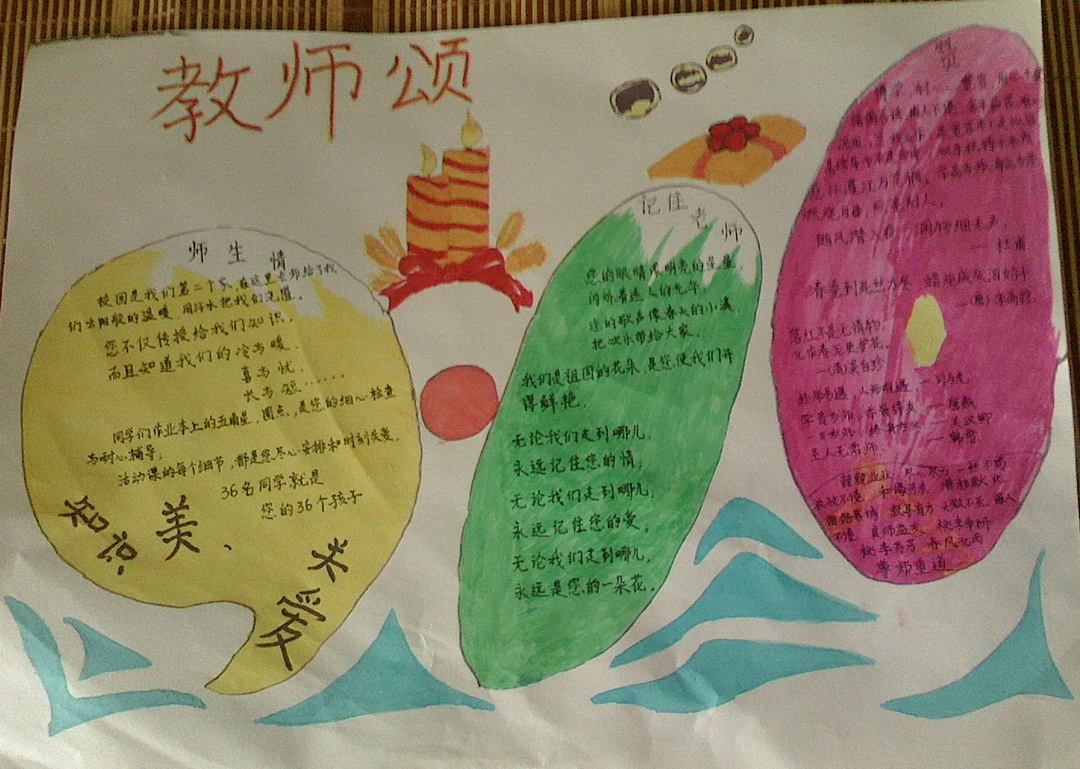 教师颂
师生情
校园是我们第二个家,在这里老师给了我
们太阳般的温暖,用汗水把我们浇灌。
您不仅传授给我们知识,
而且知道我们的冷与暖、
喜与忧、
长与短……
同学们作业本上的五角星,圈点,是您的细心检查
与耐心辅导;
活动课的每个细节,都是您尽心安排和时刻关爱。
36名同学就是
您的36个孩子
知识
美、
关爱
记住老师
您的眼睛像明亮的星星,
闪烁着迷人的光华,
您的歌声像春天的小溪,
把欢乐带给大家。
我们是祖国的花朵,是您,使我们开
得鲜艳。
无论我们走到哪儿,
永远记住您的情,
无论我们走到哪儿,
永远记住您的爱,
无论我们走到哪儿,
永远是您的一朵花。
赞
随风潜入夜,润物细无声
——杜甫
春蚕到死丝方尽 蜡炬成灰泪始干
李商隐
落红不是无情物,
化作春泥更护花。
——清龚自珍
经师易遇,人师难遇。——司马光
圣人无常师 ——韩愈
兢兢业业 尽心尽力 一丝不苟
诲人
不倦 良师益友 桃李争妍
桃李芬芳 春风化雨
尊师重道